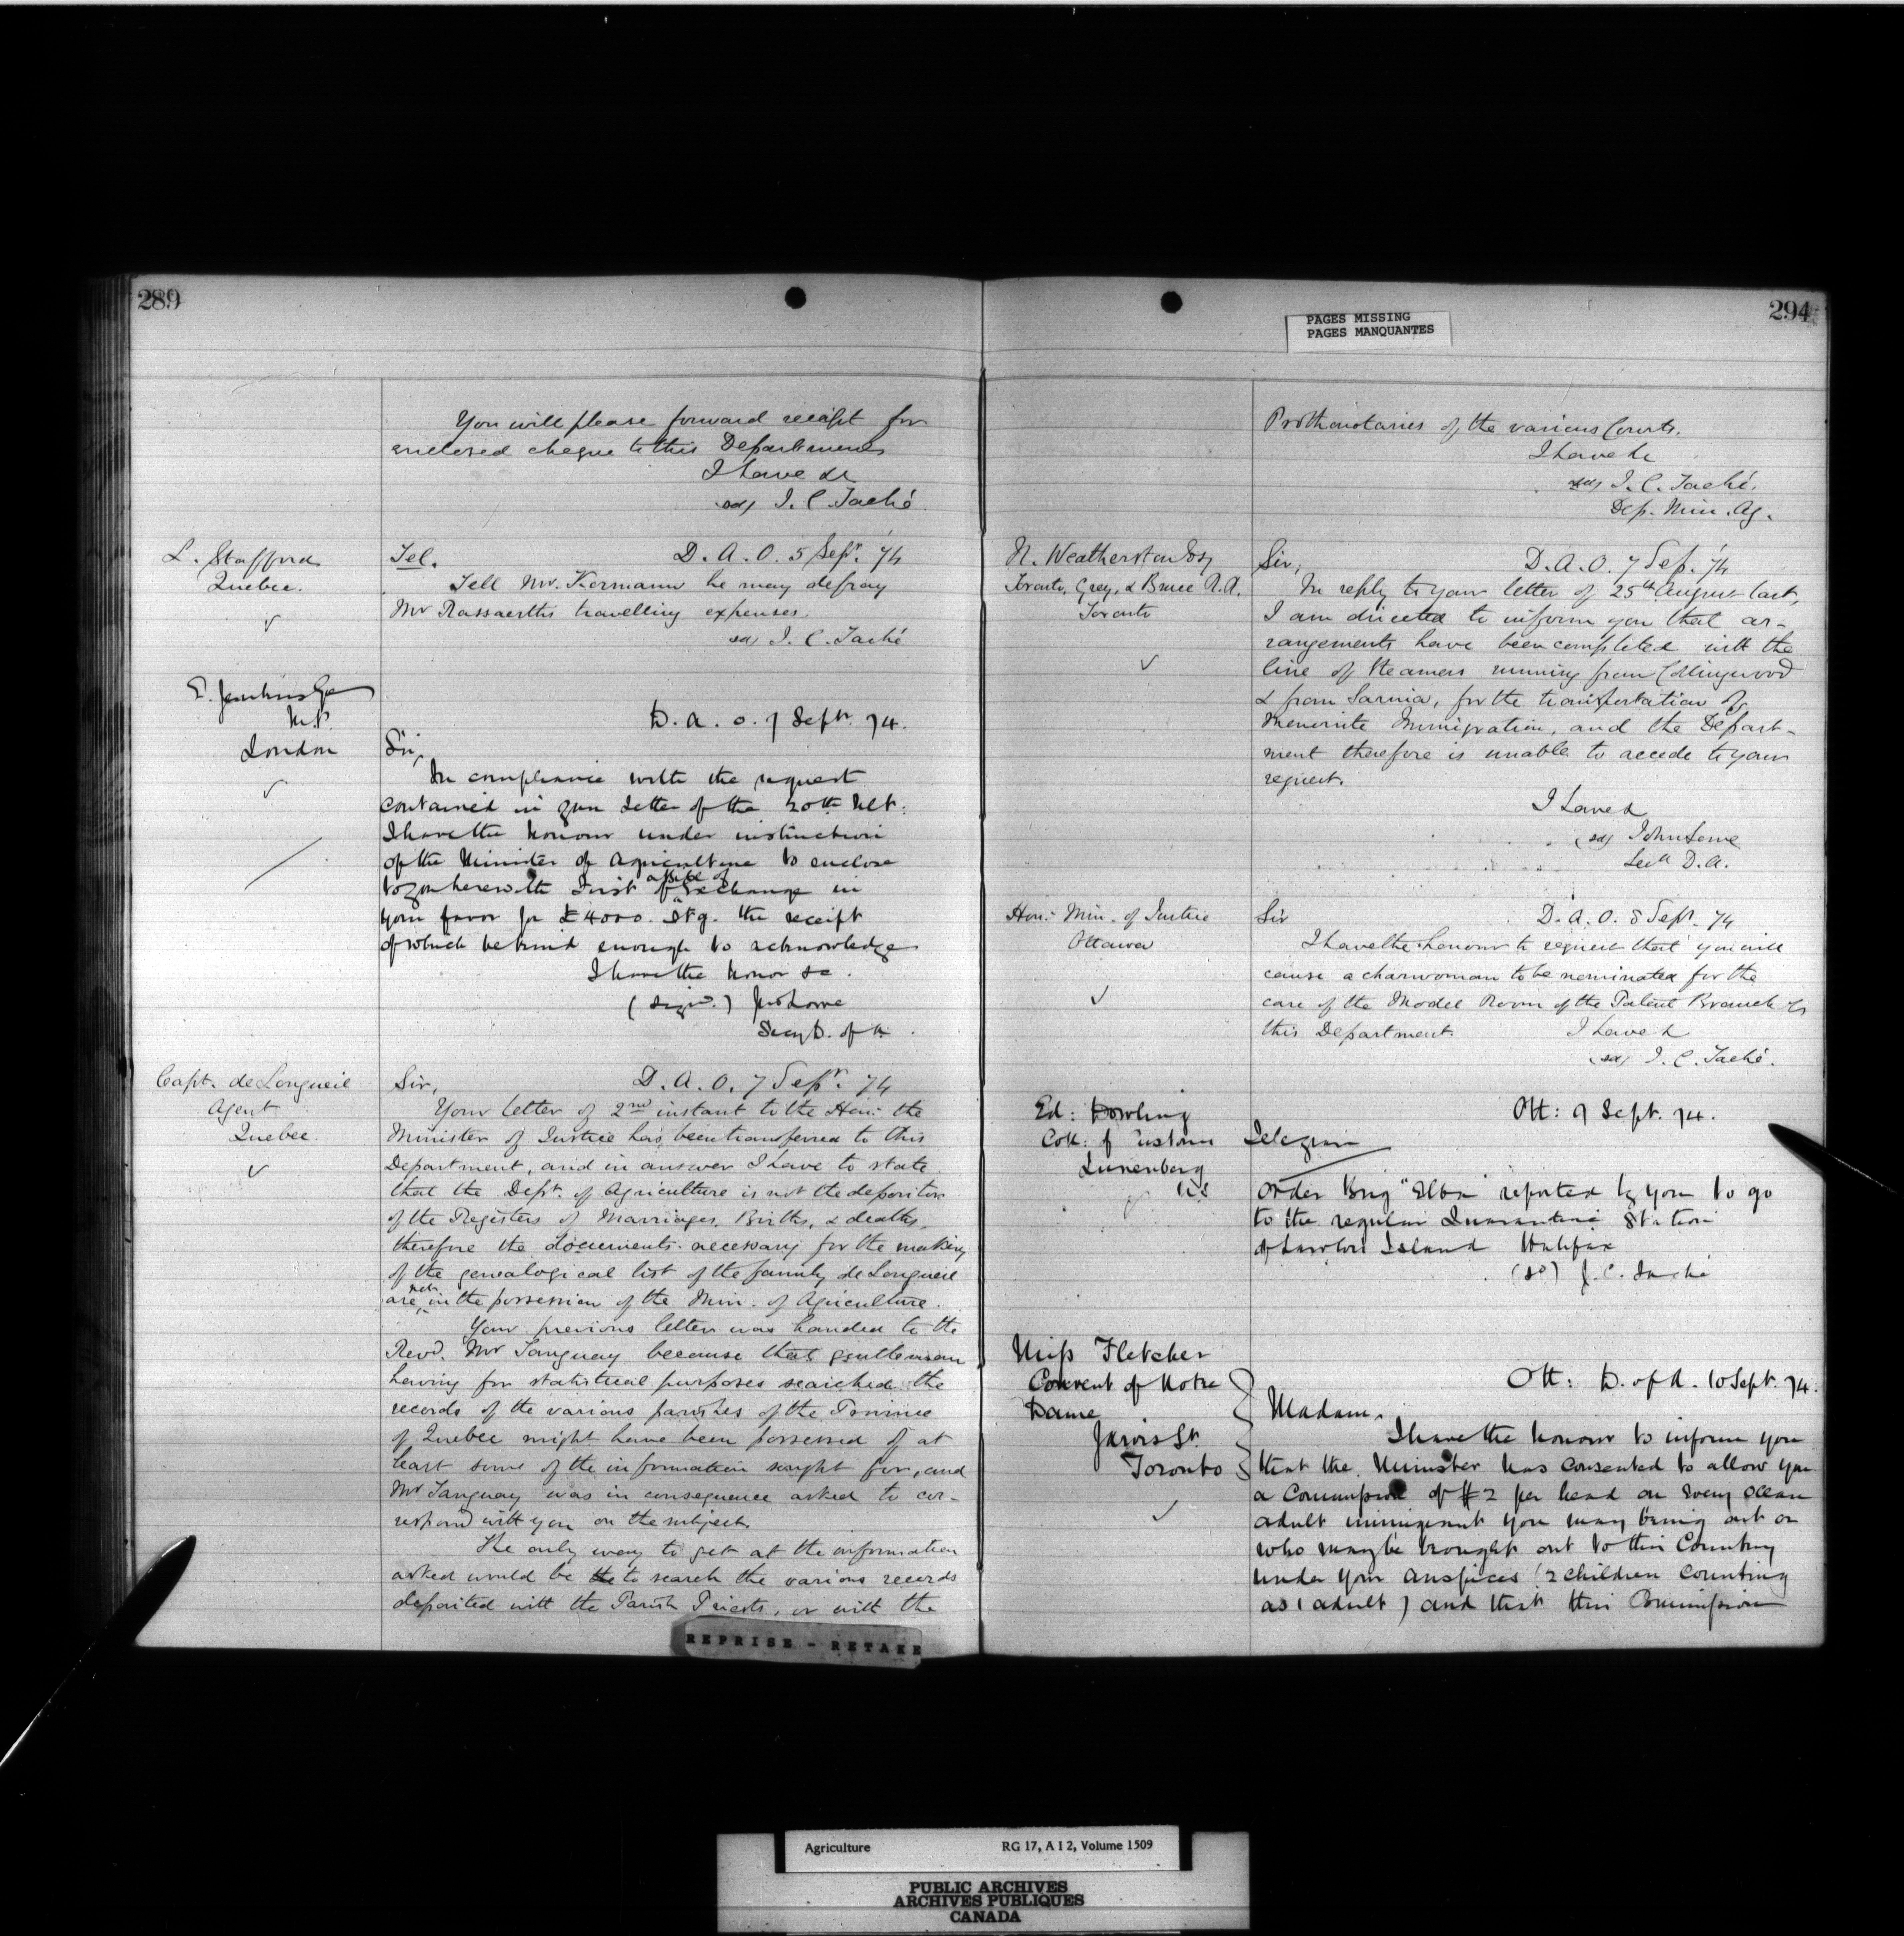 289
You will please forward receipt for
enclosed cheque to this Department
I have &c
sd) J. C. Taché
L. Stafford
Quebec.
Tel. D. A. O. 5 Sepr. '74
Tell Mr. Kormann he may defray
Mr Rassaerths travelling expenses.
sd) J. C. Taché
E. Jenkins Esq
M.P.
London
D. A. O. 7 Sept. 74.
Sir,
In compliance with the request
contained in your letter of the 20th Ult.
I have the honour under instruction
of the Minister of Agriculture to enclose
to you herewith First of Exchange in
your favor for £4000. Stg. the receipt
of which be kind enough to acknowledge
I have the honor &c.
(Signd.) Jno Lowe
Secy D. of A.
Capt. de Longueil
Agent
Quebec.
Sir, D. A. O. 7 Sepr. 74
Your letter of 2nd instant to the Hon: the
Minister of Justice has been transferred to this
Department, and in answer I have to state
that the Dept. of Agriculture is not the depositor
of the Registers of Marriages, Births, & deaths,
therefore the documents necessary for the making
of the genealogical list of the family de Longueil
are not in the possession of the Min. of Agriculture.
Your previous letter was handed to the
Revd. Mr Tanguay because that gentleman
having for statistical purposes searched the
records of the various parishes of the Province
of Quebec might have been possessed of at
least some of the information sought for, and
Mr Tanguay was in consequence asked to cor-
respond with you on the subject.
The only way to get at the information
asked would be to search the various records
deposited with the Parish Priests, or with the
REPRISE - RETAKE
294
PAGES MISSING
PAGES MANQUANTES
Prothonotaries of the various Courts.
I have &c
sd) J. C. Taché.
Dep. Min. Ag.
N. Weatherston Esq
Toronto, Grey, & Bruce R.R.
Toronto
Sir, D. A. O. 7 Sep. '74
In reply to your letter of 25th August last,
I am directed to inform you that ar-
rangements have been completed with the
line of steamers running from Collingwood
& from Sarnia, for the transportation of
Menonite Immigration, and the Depart-
ment therefore is unable to accede to your
request.
I have &
(sd) John Lowe
Secy D.A.
Hon: Min. of Justice
Ottawa
Sir D. A. O. 8 Sept. 74
I have the honour to request that you will
cause a charwoman to be nominated for the
care of the Model Room of the Patent Branch of
this Department. I have &
(sd) J. C. Taché.
Ed: Dowling
Coll: of Customs
Lunenberg
NS
Ott: 9 Sept. 74.
Telegram
Order Brig "Elba" reported by you to go
to the regular Quarantine Station
of Lawlors Island Halifax
(sd) J. C. Taché
Miss Fletcher
Convent of Notre
Dame
Jarvis St.
Toronto
Ott: D. of A. 10 Sept. 74.
Madam,
I have the honour to inform you
that the Minister has consented to allow you
a Commission of $2 per head on every ocean
adult immigrant you may bring out or
who may be brought out to this Country
under your auspices (2 children counting
as 1 adult) and that this Commission
Agriculture RG 17, A I 2, Volume 1509
PUBLIC ARCHIVES
ARCHIVES PUBLIQUES
CANADA